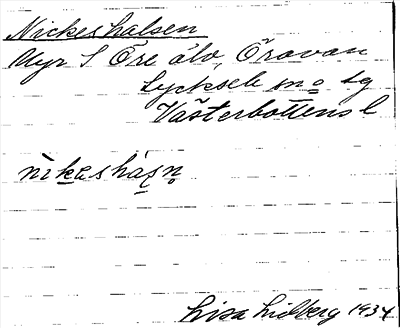 Nickeshalsen
Myr S Öre älv, Öravan
Lycksele sn o tg
Västerbottens l
nìkeshásn
Lisa Lidberg 1934